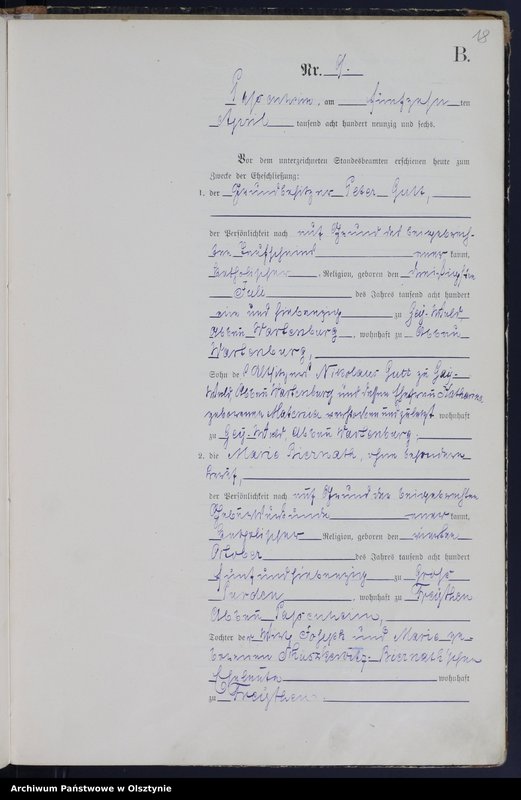 18
B.
Nr. 9.
Passenheim, am fünfzehn ten
April tausend acht hundert neunzig und sechs.
Vor dem unterzeichneten Standesbeamten erschienen heute zum
Zwecke der Eheschließung:
1. der Grundbesitzer Peter Gutt,
der Persönlichkeit nach auf Grund des beigebrach-
ten Taufscheins aner kannt,
katholischer Religion, geboren den dreißigsten
Juli des Jahres tausend acht hundert
ein und siebenzig zu Gey-Wald
Abbau Wartenburg, wohnhaft zu Abbau
Wartenburg,
Sohn des Altsitzers Nikolaus Gutt zu Gey-
Wald Abbau Wartenburg und dessen Ehefrau Katharina
geborenen verstorben und zuletzt wohnhaft
zu Gey-Wald, Abbau Wartenburg.
2. die Marie Biernath, ohne besonderen
Beruf,
der Persönlichkeit nach auf Grund der beigebrachten
Geburtsurkunde aner kannt,
katholischer Religion, geboren den vierten
October des Jahres tausend acht hundert
fünf und siebenzig zu Groß
Purden, wohnhaft zu Freythen
Abbau Passenheim,
Tochter der Wirt Joseph und Marie ge-
borenen Biernath'schen
Eheleute wohnhaft
zu Freythen.
Archiwum Państwowe w Olsztynie